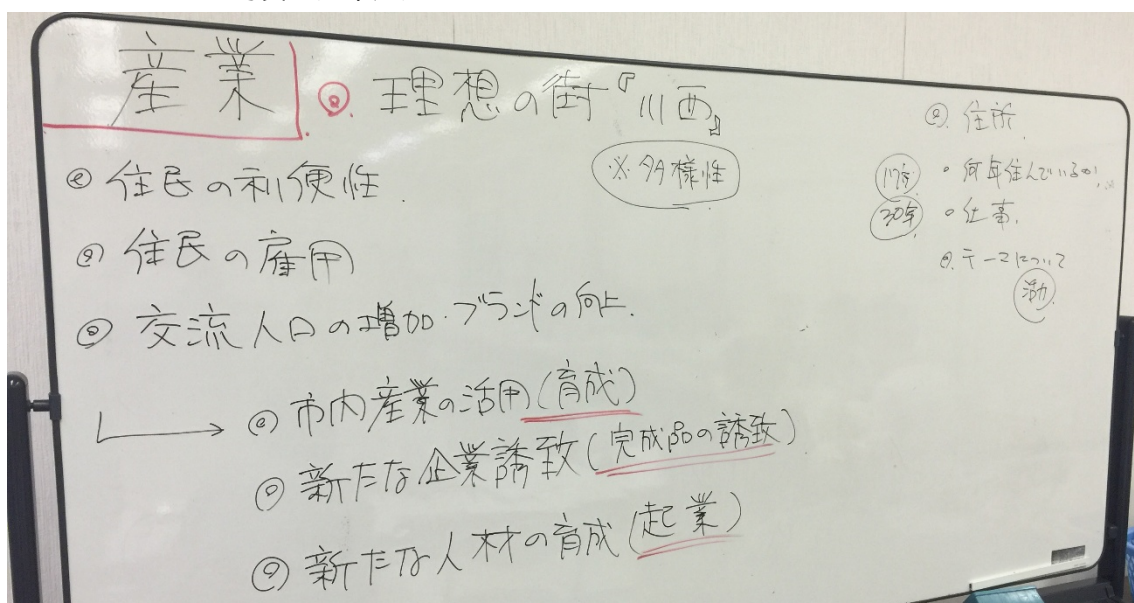 産業
◎ 理想の街『川西』
※多様性
◎ 住民の利便性
◎ 住民の雇用
◎ 交流人口の増加・ブランドの向上
→ ◎ 市内産業の活用(育成)
◎ 新たな企業誘致(完成品の誘致)
◎ 新たな人材の育成(起業)
◎ 住所
・何年住んでいるか
30年 ・仕事
◎ テーマについて